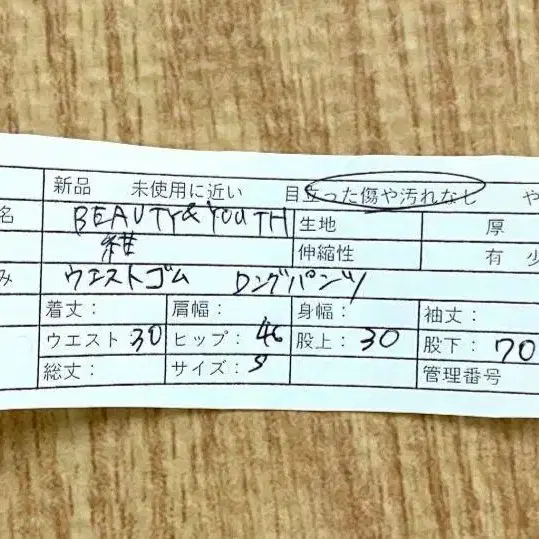 新品 未使用に近い 目立った傷や汚れなし や
名 BEAUTY&YOUTH 生地 厚
伸縮性 有 少
み ウエストゴム ロングパンツ
着丈： 肩幅： 身幅： 袖丈：
ウエスト 30 ヒップ： 46 股上： 30 股下： 70
総丈： サイズ： S 管理番号